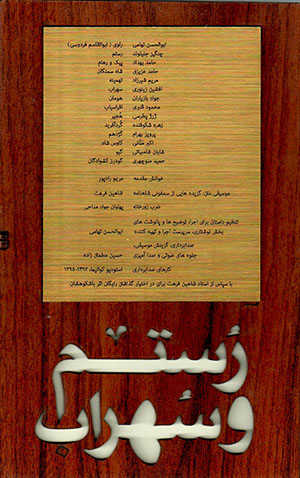 ابوالحسن تهامی راوی (ابوالقاسم فردوسی)
چنگیز جلیلوند رستم
حامد بهداد پیک و رهام
حامد عزیزی شاه سمنگان
مریم شیرزاد تهمینه
افشین زینوری سهراب
جواد بازیاران هومان
محمود قنبری افراسیاب
ژرژ پطرسی هُجیر
زهره شکوفنده گردآفرید
پرویز بهرام گژدهم
اکبر منانی کاوس شاه
شایان شامبیاتی گیو
حمید منوچهری گودرز کشوادگان
خوانش مقدمه مریم رادپور
موسیقی متن: گزیده هایی از سمفونی شاهنامه شاهین فرهت
ضرب زورخانه پهلوان جواد مداحی
تنظیم داستان برای اجرا، توضیح ها و پانوشت های
بخش نوشتاری، سرپرست اجرا و تهیه کننده ابوالحسن تهامی
صدابرداری، گزینش موسیقی،
جلوه های صوتی و صدا آمیزی حسین مظمارزاده
کارهای صدابرداری استودیو کوالیما، ۱۳۹۴-۱۳۹۵
با سپاس از استاد شاهین فرهت برای در اختیار گذاشتن رایگان اثر باشکوهشان
رُستم
و سُهراب